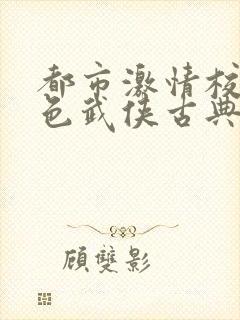 都市激情校
色武侠古典
顾雙影